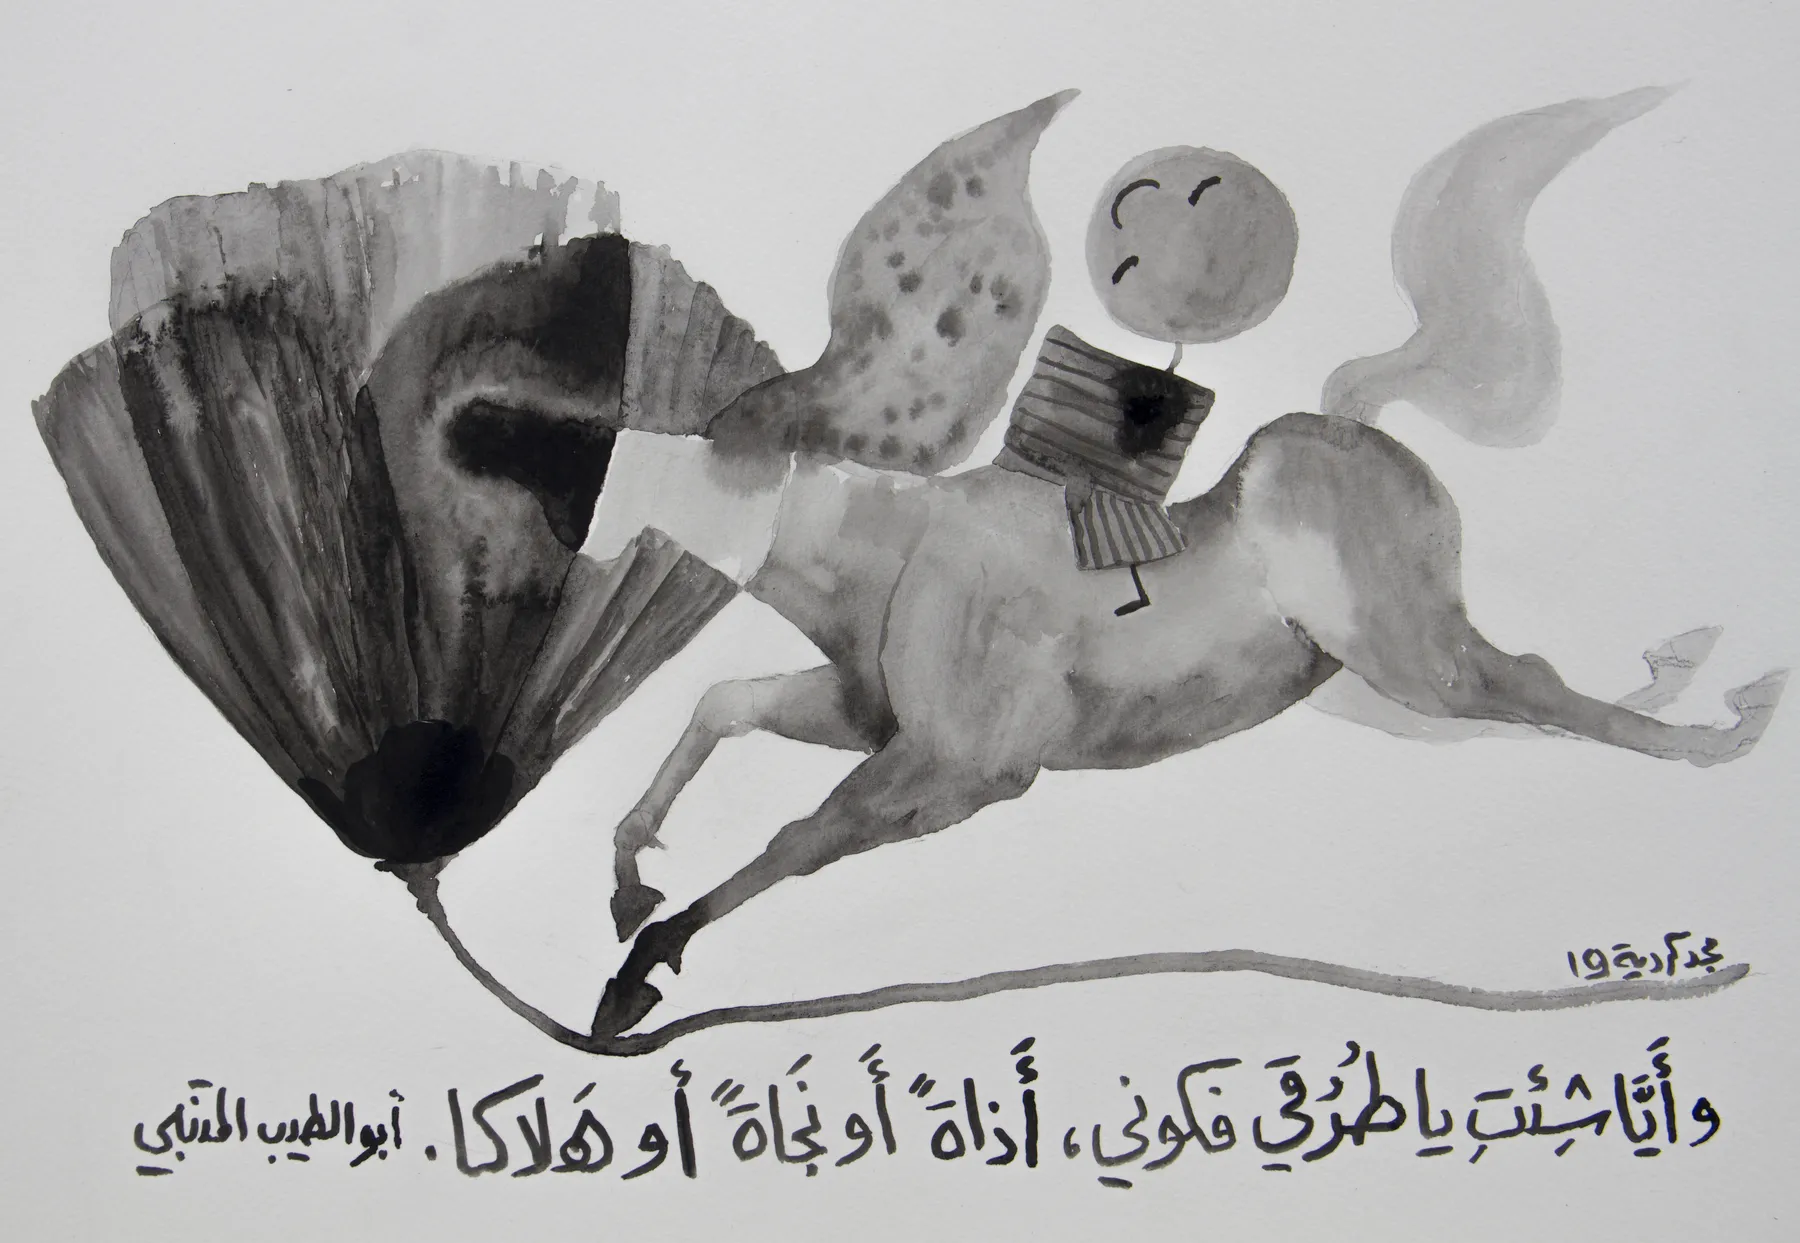 مجد كردية 19
وأَيَّا شِئتِ يا طُرُقي فكوني، أَذاةً أَو نَجاةً أَو هَلاكا. أبو الطيب المتنبي